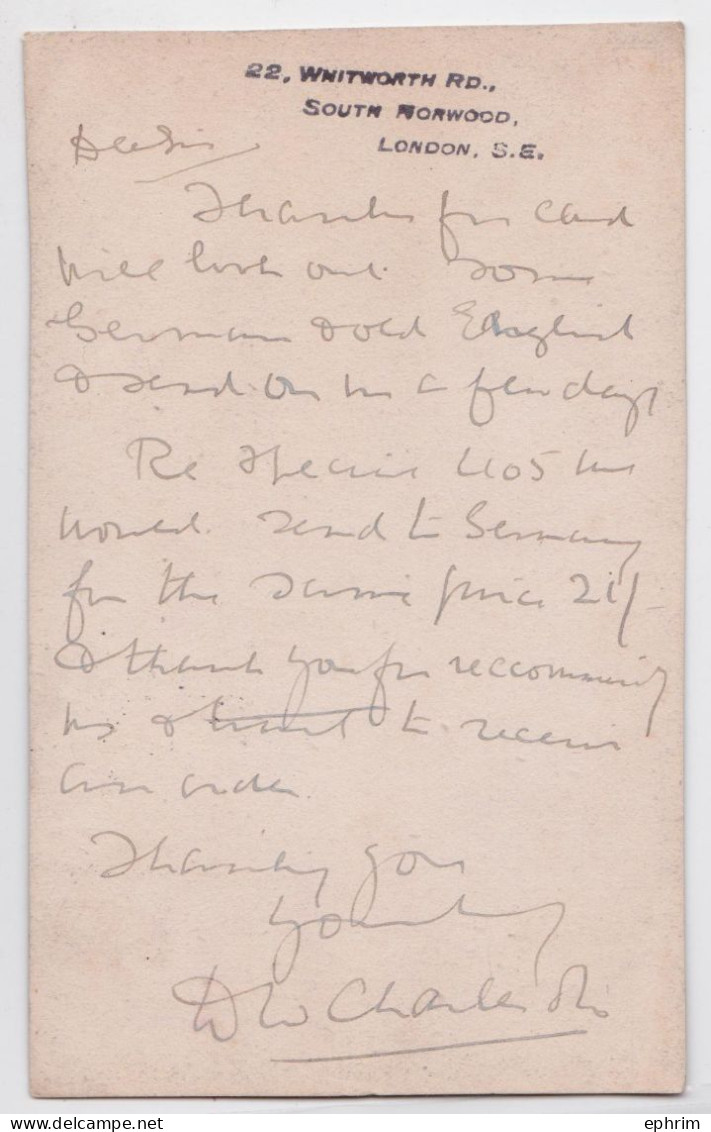 22, WHITWORTH RD.,
SOUTH NORWOOD,
LONDON, S.E.
Dear Sir
Thanks for card
will look out some
German & old English
& send on in a few days
Re Specie 1105 we
would send to Germany
for the same price 21/-
& thank you for reccommending
us & to receive
an order
Thanking you
Yours truly
D W Charles
ephrim
delcampe.net